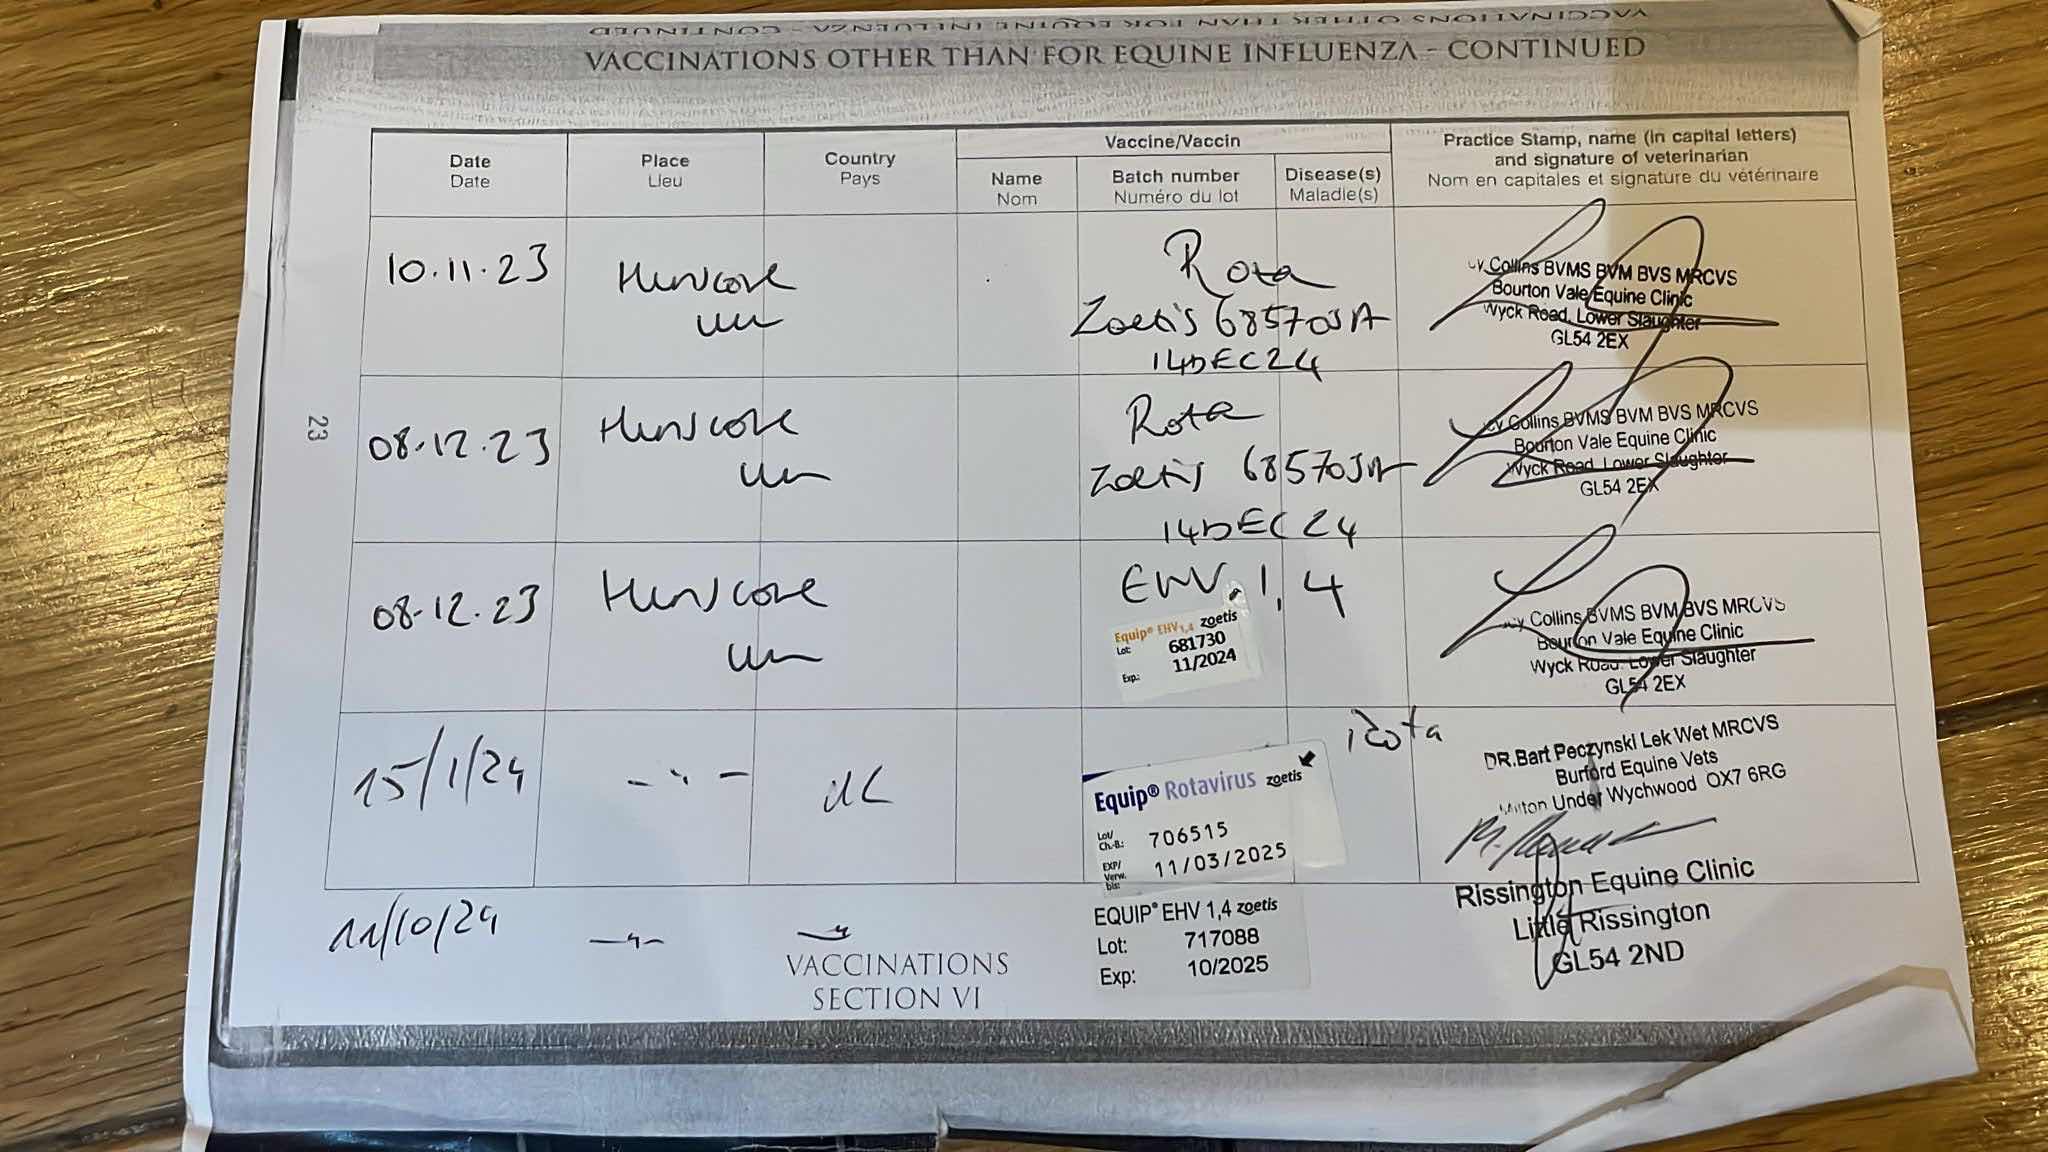 VACCINATIONS OTHER THAN FOR EQUINE INFLUENZA - CONTINUED
VACCINATIONS OTHER THAN FOR EQUINE INFLUENZA - CONTINUED
Date
Date
Place
Lieu
Country
Pays
Vaccine/Vaccin
Name
Nom
Batch number
Numéro du lot
Disease(s)
Maladie(s)
Practice Stamp, name (in capital letters)
and signature of veterinarian
Nom en capitales et signature du vétérinaire
10.11.23
Rota
Zoetis 685703A
14DEC24
Collins BVMS BVM BVS MRCVS
Bourton Vale Equine Clinic
Wyck Road, Lower Slaughter
GL54 2EX
23
08.12.23
Rota
Zoetis 685703A
14DEC24
Collins BVMS BVM BVS MRCVS
Bourton Vale Equine Clinic
Wyck Road, Lower Slaughter
GL54 2EX
08.12.23
EHV 1,4
Equip® EHV 1,4 zoetis
Lot: 681730
Exp.: 11/2024
Collins BVMS BVM BVS MRCVS
Bourton Vale Equine Clinic
Wyck Road, Lower Slaughter
GL54 2EX
15/1/24
-"-
UK
Rota
Equip® Rotavirus zoetis
Lot/
Ch.-B.: 706515
EXP/
Verw.
bis: 11/03/2025
DR.Bart Peczynski Lek Wet MRCVS
Burford Equine Vets
Milton Under Wychwood OX7 6RG
11/10/24
-"-
-"-
EQUIP® EHV 1,4 zoetis
Lot: 717088
Exp: 10/2025
Rissington Equine Clinic
Little Rissington
GL54 2ND
VACCINATIONS
SECTION VI